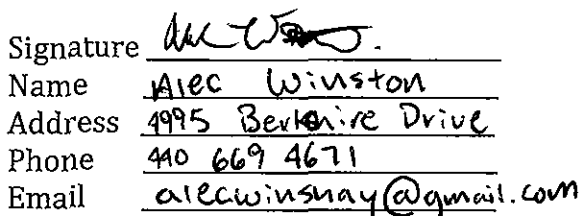 Signature
Name Alec Winston
Address 4995 Berkshire Drive
Phone 440 669 4671
Email alecwinshay@gmail.com